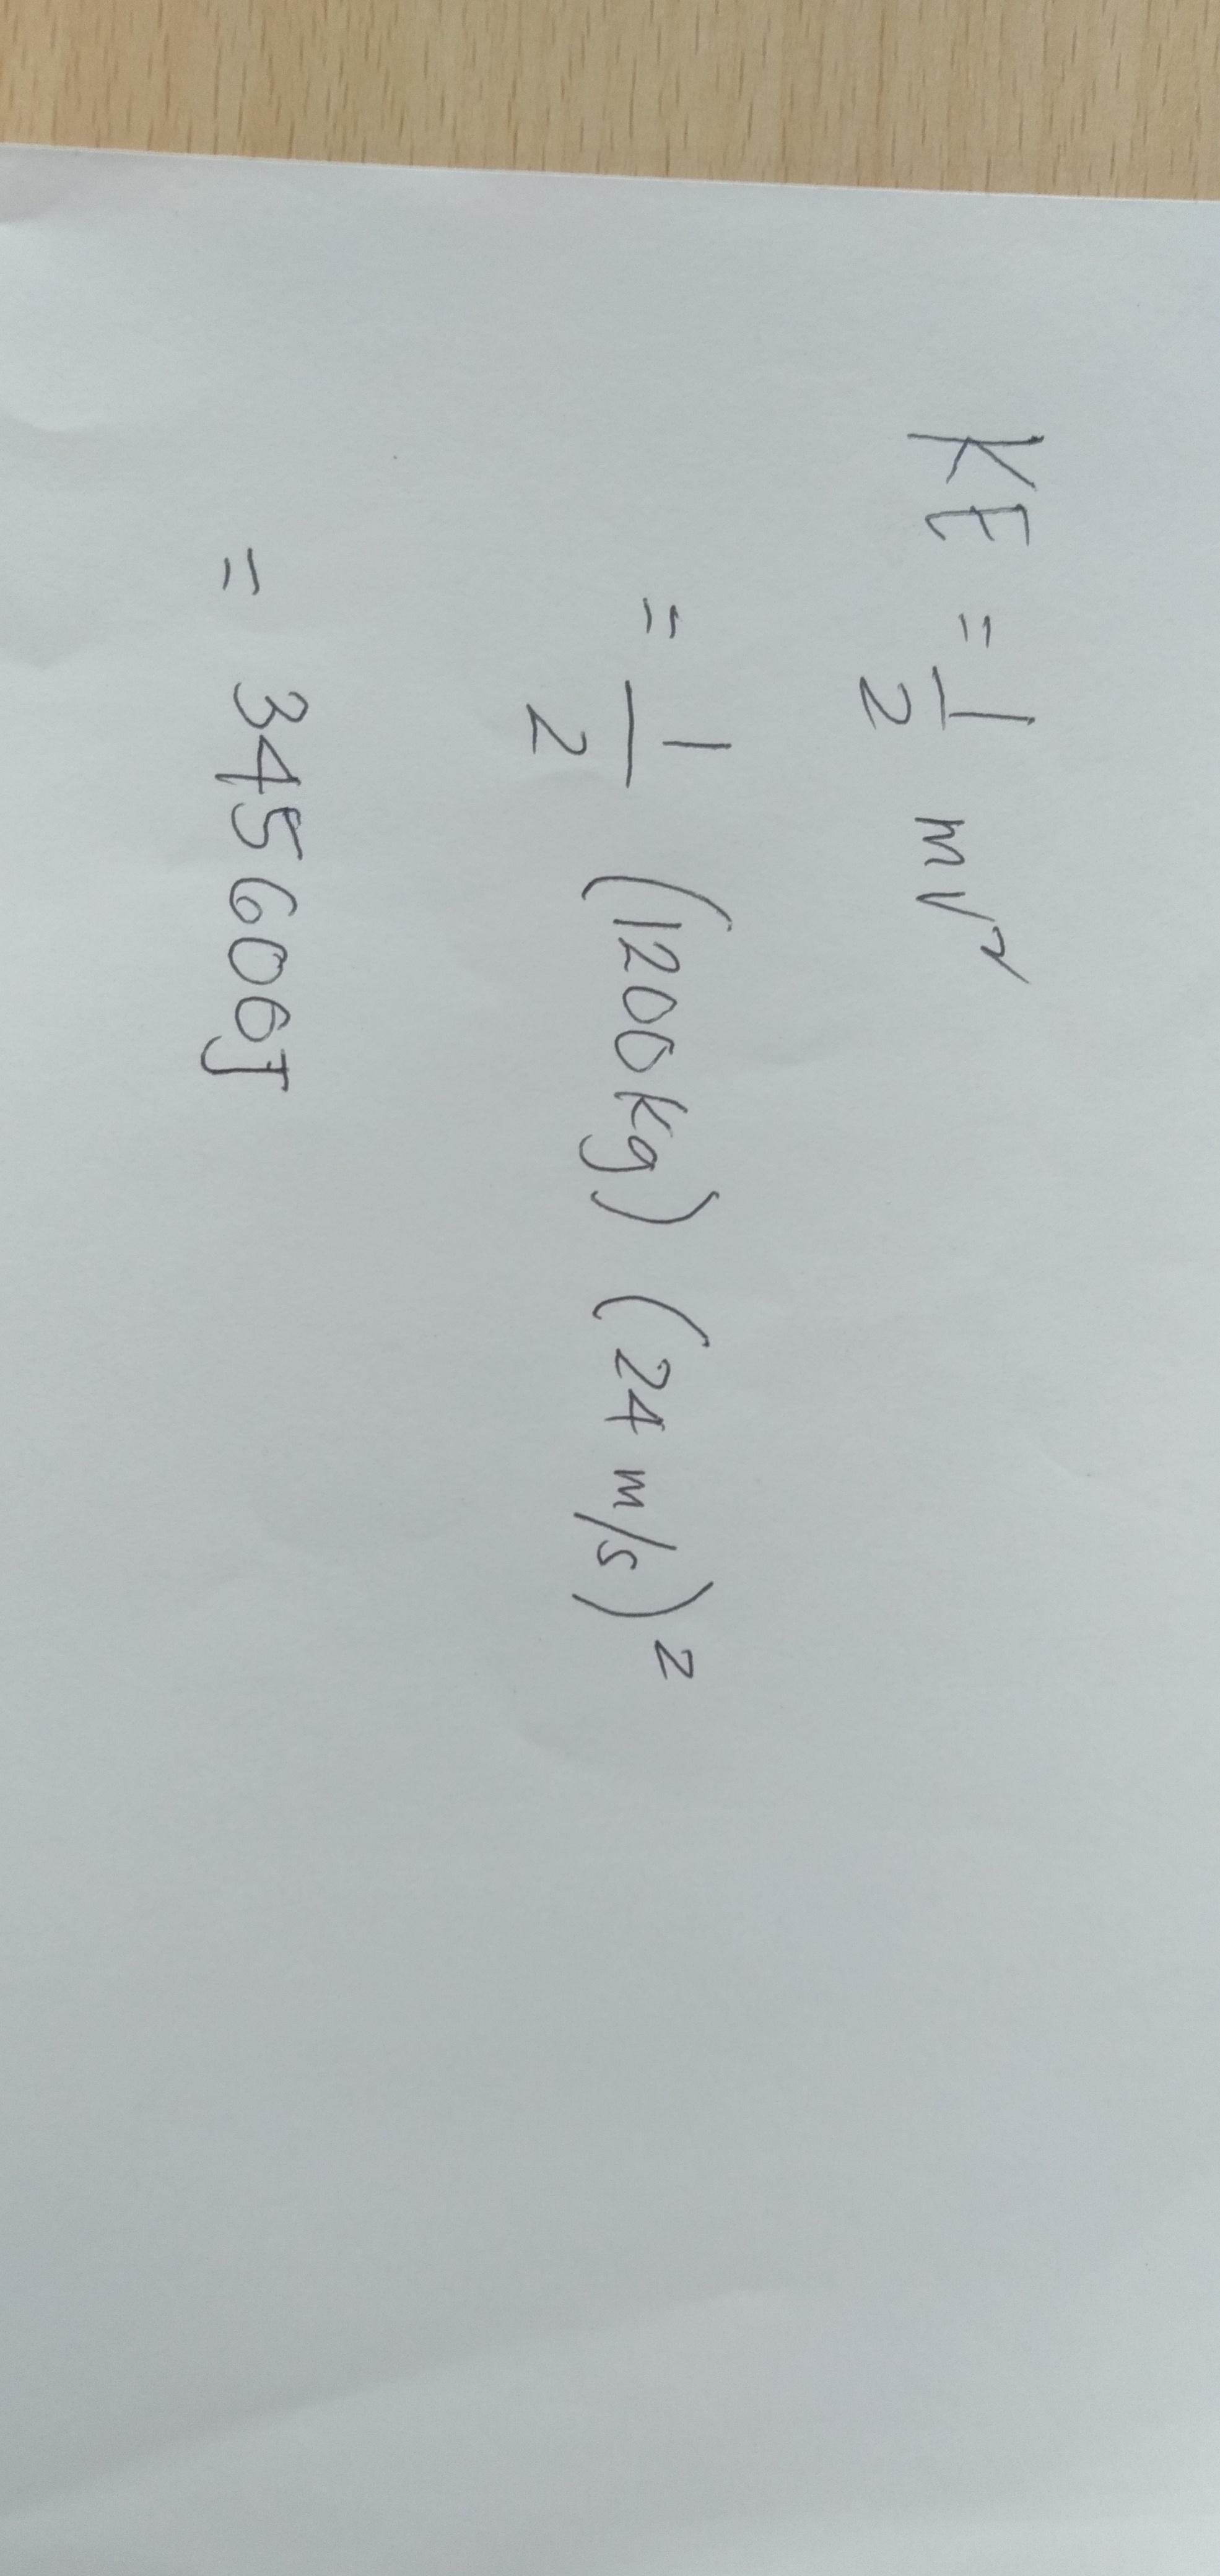 KE = 1/2 mv²
= 1/2 (1200kg) (24 m/s)²
= 345600J